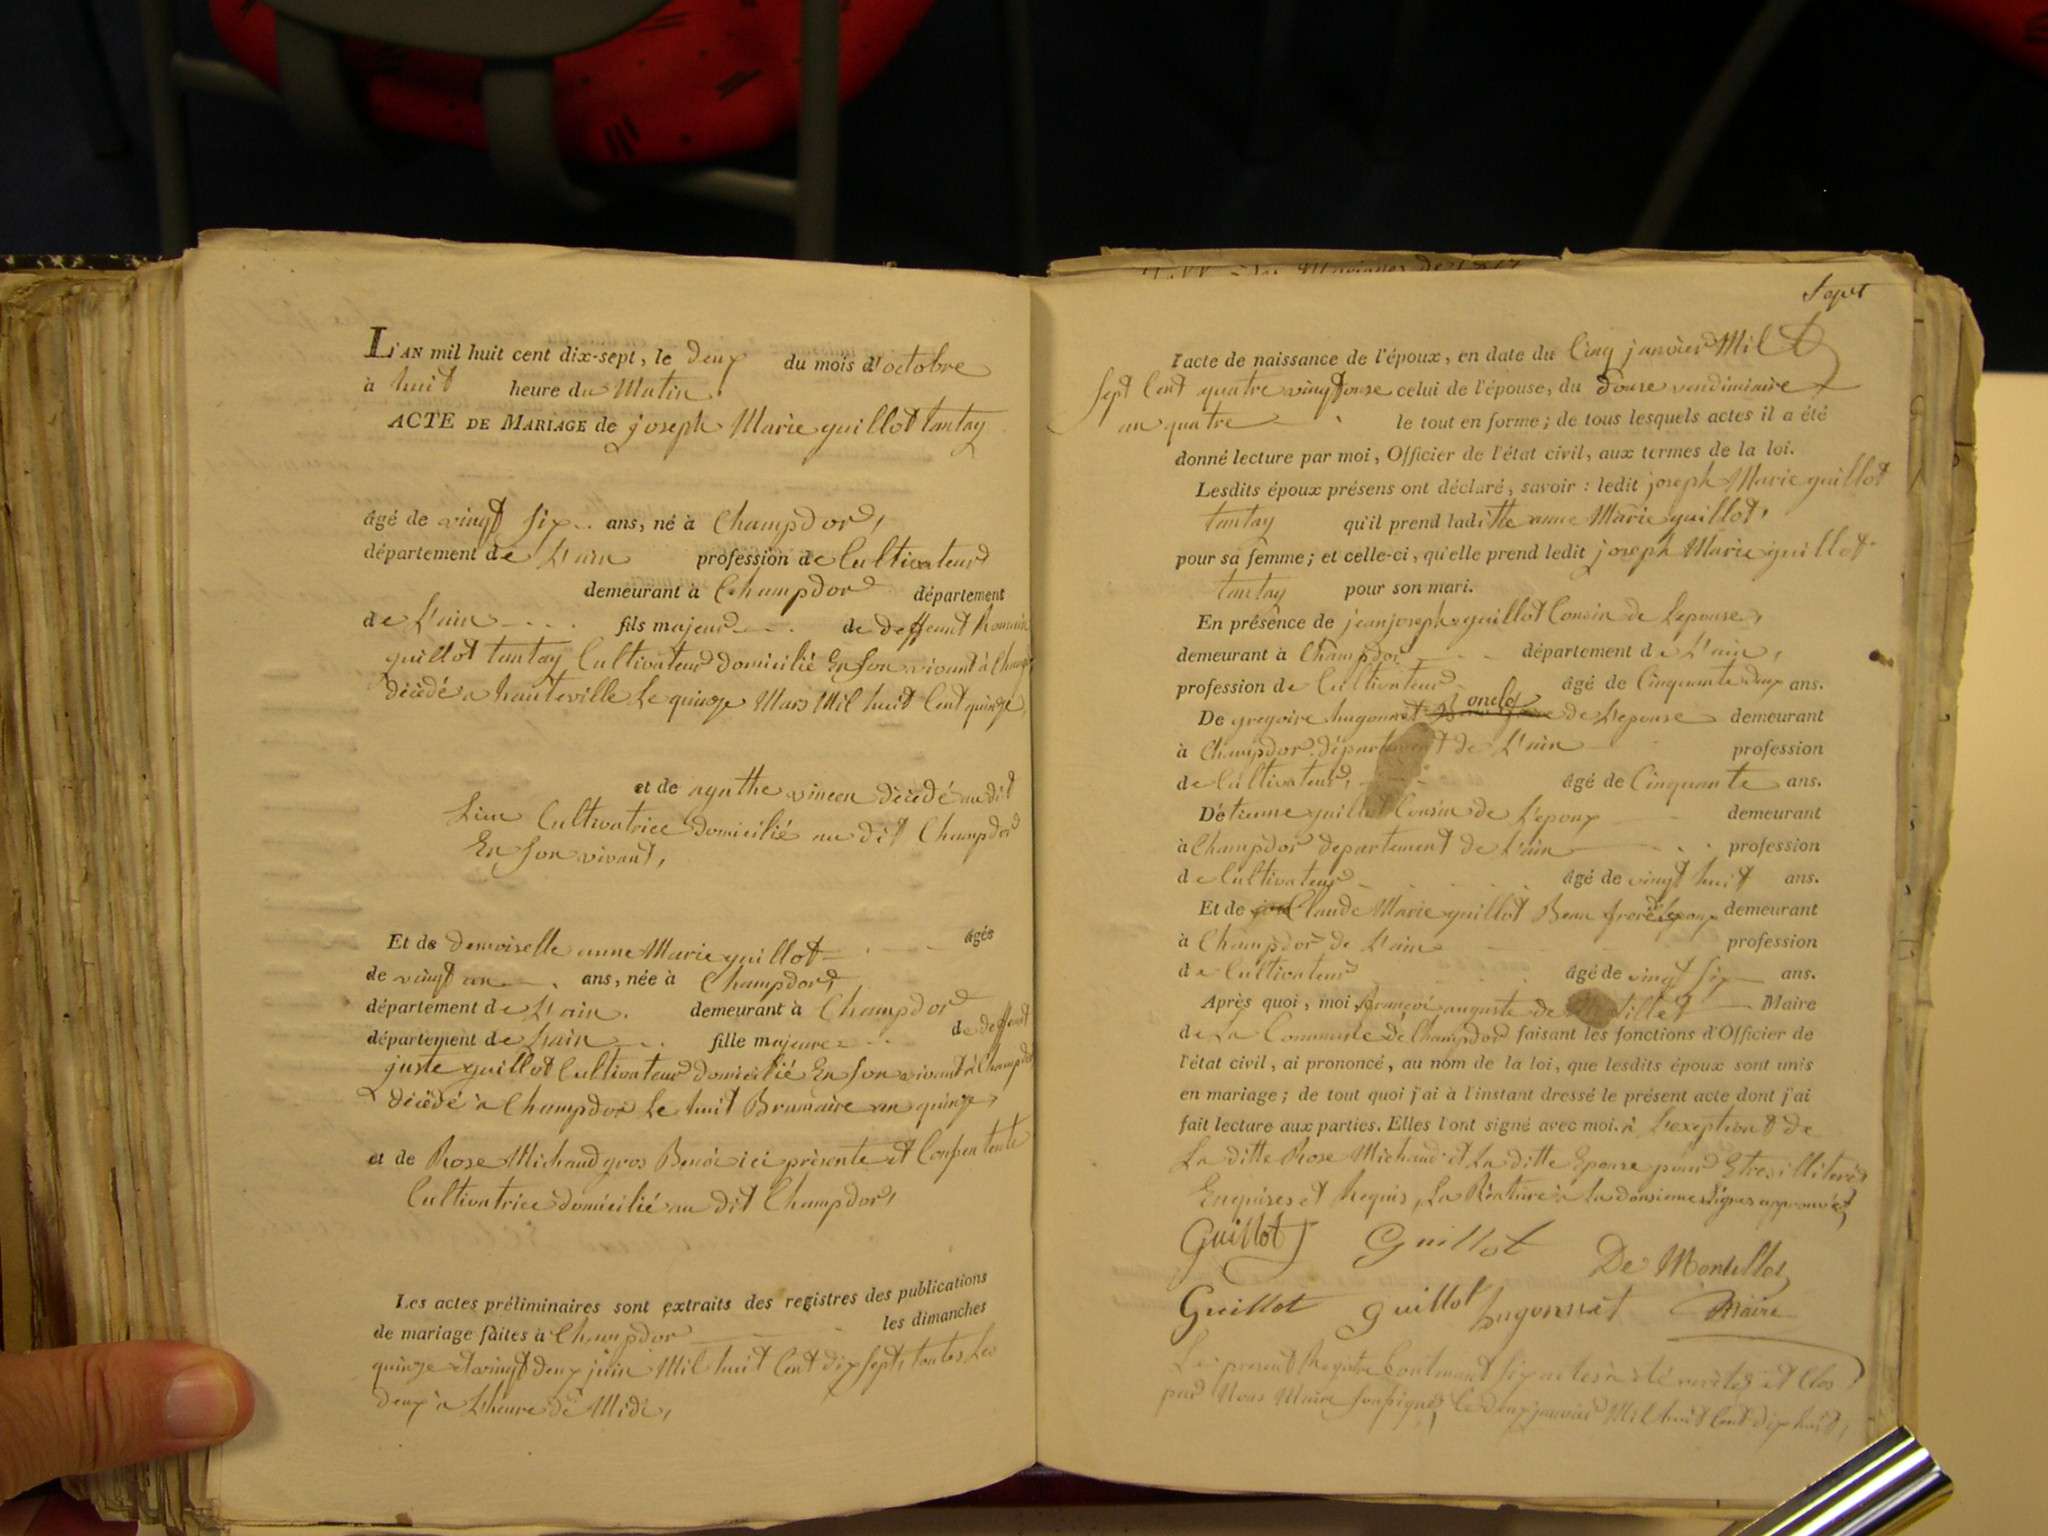 L'AN mil huit cent dix-sept, le deux du mois d'octobre
à huit heure du Matin
ACTE DE MARIAGE de joseph Marie guillot tantay
âgé de vingt six ans, né à Champdor,
département de L'ain profession de Cultivateur
demeurant à Champdor département
de L'ain fils majeur de deffeunt Romain
guillot tantay Cultivateur domicilié En son vivant à Champ
décédé a hauteville Le quinze Mars Mil huit Cent quinze,
et de agathe vincen décédé au dit
Lieu Cultivatrice domicilié au dit Champdor
En son vivant,
Et de demoiselle anne Marie guillot âgée
de vingt un ans, née à Champdor,
département de L'ain. demeurant à Champdor
département de L'ain fille majeure de deffeunt
juste guillot Cultivateur domicilié En son vivant à Champdor
décédé à Champdor Le huit Brumaire an quinze,
et de Rose Michaud gros Benoi ici présente et Consentente
Cultivatrice domicilié au dit Champdor,
Les actes préliminaires sont extraits des registres des publications
de mariage faites à Champdor les dimanches
quinze et vingt deux juin Mil huit Cent dix sept, toutes Les
deux à L'heure de Midi,
Sept
l'acte de naissance de l'époux, en date du Cinq janvier Mil
Sept Cent quatre vingt onse celui de l'épouse, du douse vendimiaire
an quatre le tout en forme; de tous lesquels actes il a été
donné lecture par moi, Officier de l'état civil, aux termes de la loi.
Lesdits époux présens ont déclaré, savoir : ledit joseph Marie guillot
tantay qu'il prend laditte anne Marie guillot,
pour sa femme; et celle-ci, qu'elle prend ledit joseph Marie guillot
tantay pour son mari.
En présence de jean joseph guillot Cousin de Lepouse,
demeurant à Champdor département de L'ain,
profession de Cultivateur âgé de Cinquante deux ans.
De gregoire hugonnet oncle de L'epouse demeurant
à Champdor département de L'ain profession
de Cultivateur, âgé de Cinquante ans.
D'étienne guillot Cousin de L'epoux demeurant
à Champdor departement de L'ain profession
de Cultivateur âgé de vingt huit ans.
Et de Claude Marie guillot Beau frere de Lepoux demeurant
à Champdor de L'ain profession
de Cultivateur âgé de vingt six ans.
Après quoi, moi auguste de Maire
de La Commune de Champdor faisant les fonctions d'Officier de
l'état civil, ai prononcé, au nom de la loi, que lesdits époux sont unis
en mariage; de tout quoi j'ai à l'instant dressé le présent acte dont j'ai
fait lecture aux parties. Elles l'ont signé avec moi. à L'exeption de
La ditte Rose Michaud et La ditte Epouse pour Etre illiterés
Enquises et Requis, La Rature à la donsieme Lignes approuvée,
Guillot Guillot De Montillet
Guillot guillot hugonnet Maire
Le present Registre Contenant six actes à été verités et Clos
par Nous Maire soussigné, Le deux janvier Mil huit Cent dix huit,